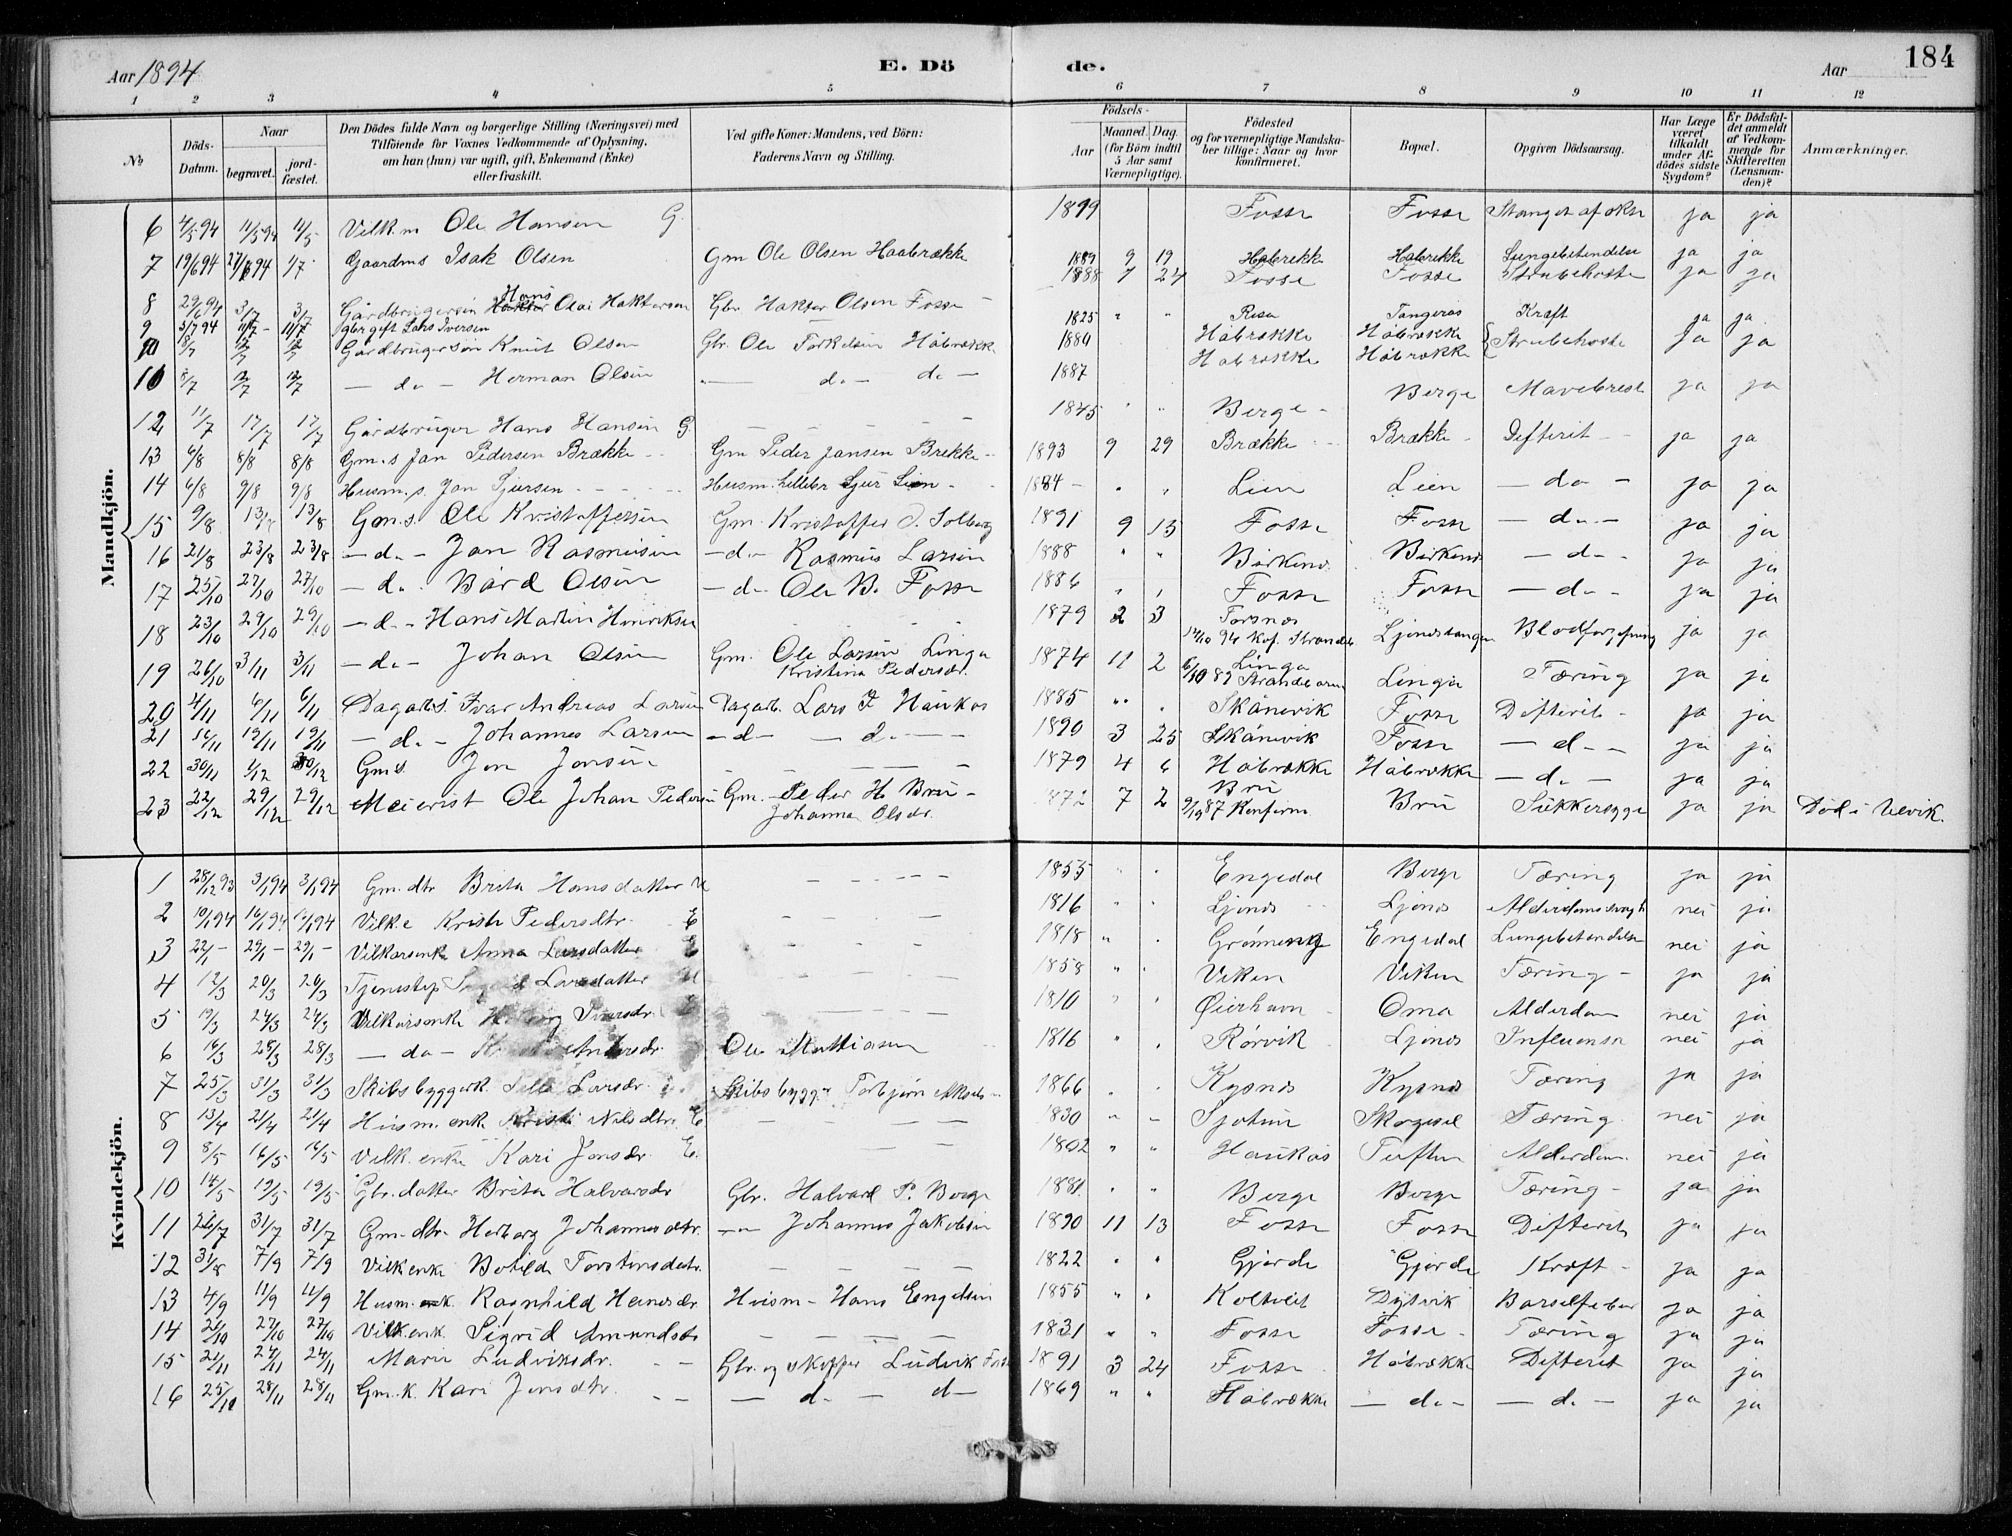 Aar 1894 E. Dö de. Aar 184
1 2 3 4 5 6 7 8 9 10 11 12
No Döds-Datum. Naar begravet. jordfæstet. Den Dödes fulde Navn og borgerlige Stilling (Næringsvei) med Tilföiende for Voxnes Vedkommende af Oplysning, om han (hun) var ugift, gift, Enkemand (Enke) eller fraskilt. Ved gifte Koner: Mandens, ved Börn: Faderens Navn og Stilling. Födsels- Aar Maaned Dag. (for Börn indtil 5 Aar samt Værnepligtige). Födested og for værnepligtige Mandskaber tillige: Naar og hvor konfirmeret. Bopæl. Opgiven Dödsaarsag. Har Læge været tilkaldt under Afdödes sidste Sygdom? Er Dödsfaldet anmeldt af Vedkommende for Skifteretten (Lensmanden)? Anmærkninger.
Mandkjön.
6 4/5 94 11/5 94 11/5 Vilk.m Ole Hansen G. 1819 Fosse Fosse Stanget af okse ja ja
7 19/6 94 27/6 94 1/7 Gaardms Isak Olsen Gm Ole Olsen Haabrække 1889 9 19 Habrekke Habrekke Lungebetendelse ja ja
8 29/6 94 3/7 3/7 Gårdbrugersøn Hans Olai Haktorsen Gbr. Haktor Olsen Fosse 1888 7 24 Fosse Fosse Strubehoste ja ja
9 3/7 94 11/7 11/7 gbr gift Lars Iversen 1825 " " Resa Tangerås Kræft ja ja
10 8/7 12/7 12/7 Gårdbrugersøn Knut Olsen Gbr. Ole Torkelsen Håbrække 1880 Håbrække Håbrække Strubehoste ja ja
8/7 12/7 12/7 - do - Herman Olsen - do - do - 1887 Håbrække Håbrække
12 11/7 17/7 17/7 Gårdbruger Hans Hansen G. 1845 " " Berge Berge Mavebrest ja ja
13 6/8 8/8 8/8 Gm.s Jan Pedersen Brække Gm Peder Jansen Brekke 1893 9 29 Brække Brække Difterit ja ja
14 6/8 9/8 9/8 Husm.s. Jan Sjursen Husm. Sjur Lien 1884 " " Lien Lien - do - ja ja
15 9/8 13/8 13/8 Gm.s. Ole Kristoffersen Gm. Kristoffer O. Solberg 1891 9 13 Fosse Fosse - do - ja ja
16 21/8 23/8 23/8 - do - Jan Rasmusen - do - Rasmus Larsen 1888 " " Birkenes Birkenes - do - ja ja
17 25/10 27/10 27/10 - do - Bård Olsen - do - Ole B. Fosse 1886 " " Fosse Fosse - do - ja ja
18 23/10 29/10 29/10 - do - Hans Martin Henriksen 1879 2 3 Torsnes
94 Kof. Strandeb Ljonestangen Blodforgiftning ja ja
19 26/10 3/11 3/11 - do - Johan Olsen Gm. Ole Larsen Linga Kristina Pedersdr. 1874 11 2 Linga 6/10 89 Strandebarm Linga Tæring ja ja
20 4/11 6/11 6/11 Dagarbs. Ivar Andreas Larsen Dagarb. Lars I Haukas 1885 " " Skånevik Fosse Difterit - ja ja
21 16/11 19/11 19/11 - do - Johannes Larsen - do - - do - 1890 3 25 Skånevik Fosse - do - ja ja
22 30/11 1/12 Gms. Jon Jonsen 1879 4 6 Håbrække Håbrække - do - ja ja
23 22/12 29/12 29/12 Meierist Ole Johan Pedersen Gm. Peder H. Bru - Johanna Olsdr. 1872 7 2 Bru 87 Konfirm Bru Sukkersyge ja ja Död i Ulvik.
Kvindekjön.
1 28/12 93 3/1 94 3/1 94 Gm.dtr Brita Hansdatter U 1855 " " Engedal Berge Tæring ja ja
2 10/1 94 16/1 94 16/1 94 Vilk.e Kristi Pedersdtr. E 1816 " " Ljones Ljones Alderdomssvagh nei ja
3 22/1 - 29/1 - 29/1 - Vilkarsenke Anna Larsdatter E 1818 " " Grønneng Engedal Lungebetendelse nei ja
4 12/3 20/3 20/3 Tjenestep. Larsdatter U 1858 " " Viken Viken Tæring - ja ja
5 19/3 24/3 24/3 Vilkarsenke Iversdr. E 1810 " " Øierhavn Oma Alderdom nei ja
6 16/3 28/3 28/3 - do - Andersdr. Ole Mathiasen 1816 " " Rørvik Ljones Influensa nei ja
7 25/3 31/3 31/3 Skibsbyggerk. Larsdr. Skibsbygger Torbjørn Aksels 1866 " " Kysnes Kysnes Tæring ja ja
8 13/4 21/4 21/4 Husm.enke Kristi Nilsdtr. E 1830 " " Sjotun Skogseid Tæring nei ja
9 8/5 16/5 16/5 Vilk.enke Kari Jonsdr. E. 1802 " " Haukås Tuften Alderdom nei ja
10 14/5 19/5 19/5 Gbr.datter Brita Halvarsdr Gbr. Halvard P. Berge 1881 " " Berge Berge Tæring - ja ja
11 26/7 31/7 31/7 Gm.dtr. Herborg Johannesdtr. - Johannes Jakobsen 1890 11 13 Fosse Fosse Difterit ja ja
12 31/8 7/9 7/9 Vilkenke Botilda Torstensdatr. 1822 " " Gjerde Gjerde Kræft - ja ja
13 4/9 11/9 11/9 Husm.k. Ragnhild Hansdr. Husm - Hans Engelsen 1855 " " Koltveit Dysvik Barselfeber ja ja
14 21/10 27/10 27/10 Vilkenk. Sigrid Amundsdr 1831 " " Fosse Fosse - Tæring ja ja
15 21/11 24/11 24/11 Marie Ludviksdr. Gbr. og skipper Ludvik Fosse 1891 3 24 Fosse Håbrække Difterit ja ja
16 25/11 28/11 28/11 Gm.k. Kari Jonsdtr. - do - do - 1869 " " Håbrække - do - - do - ja ja